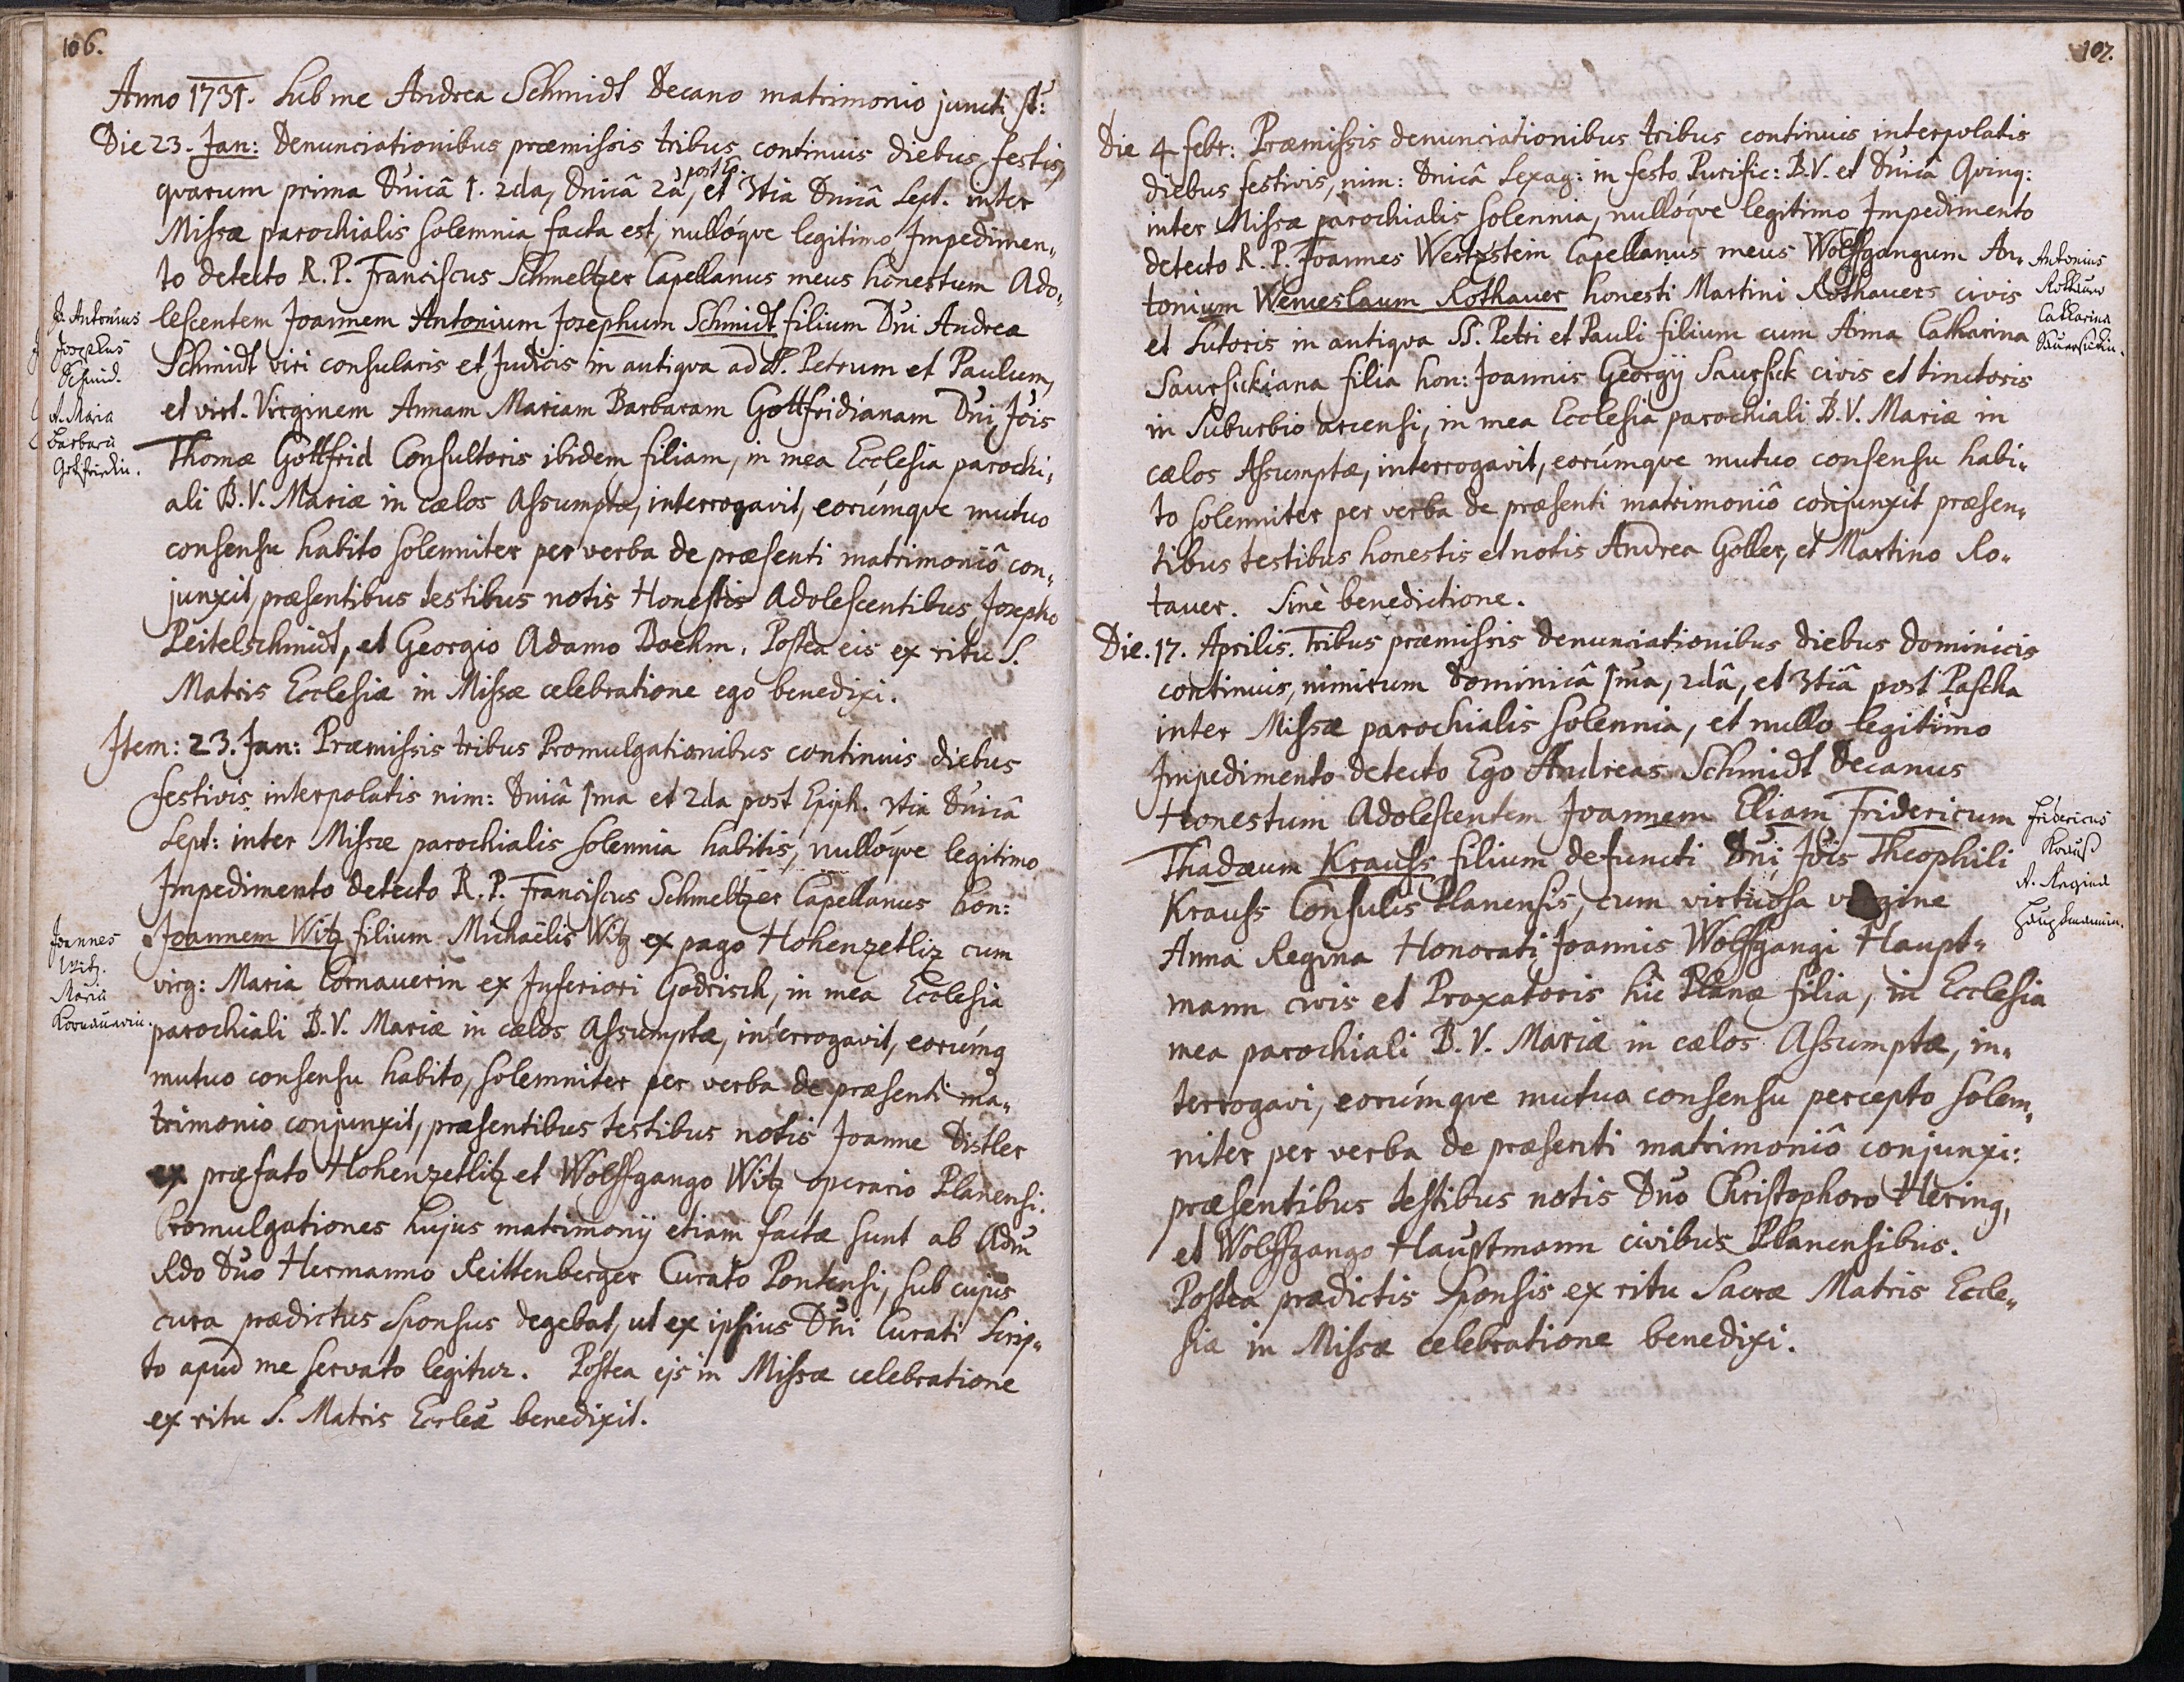 106.
Anno 1731. Sub me Andrea Schmidt Decano matrimonio juncti st:
Die 23. Jan: Denunciationibus præmissis tribus continuis diebus festis,
qvarum prima Dnicâ 1. 2da, Dnicâ 2dâ, et 3tia Dnicâ Sept. inter
Missæ parochialis solemnia facta est, nullóqve legitimo Impedimen„
to detecto R. P. Franciscus Schmeltzer Capellanus meus honestum Ado„
lescentem Joannem Antonium Josephum Schmidt filium Dni Andreæ
Schmidt viri consularis et Judicis in antiqva ad SS. Petrum et Paulum,
et virt. Virginem Annam Mariam Barbaram Gottfridianam Dni Jois
Thomæ Gottfrid Consultoris ibidem filiam, in mea Ecclesia parochi„
ali B. V. Mariæ in cælos Assumptæ, interrogavit, eorúmqve mutuo
consensu habito solemniter per verba de præsenti matrimoniô con„
junxit, præsentibus testibus notis Honestis Adolescentibus Josepho
Peitelschmidt, et Georgio Adamo Boehm. Postea eis ex ritu S.
Matris Ecclesiæ in Missæ celebratione ego benedixi.
J. Antonius
Josephus
Schmid.
A. Maria
Barbara
Gottfridin.
Item: 23. Jan: Præmissis tribus Promulgationibus continuis diebus
festivis interpolatis nim: Dnicâ 1ma et 2da post Epiph. 3tia Dnicâ
Sept: inter Missæ parochialis solennia habitis, nullóqve legitimo
Impedimento detecto R. P. Franciscus Schmeltzer Capellanus hon:
Joannem Witz filium Michaëlis Witz ex pago Hohenzetliz cum
virg: Maria Cornauerin ex Inferiori Godrisch, in mea Ecclesia
parochiali B. V. Mariæ in cælos Assumptæ, interrogavit, eorúmq
mutuo consensu habito, solemniter per verba de præsenti ma„
trimonio conjunxit, præsentibus testibus notis Joanne Distler
ex præfato Hohenzetlitz et Wolffgango Witz operario Planensi.
Promulgationes hujus matrimonij etiam factæ sunt ab Adm
Rdo Dno Hermanno Reittenberger Curato Pontensi, sub cujus
cura prædictus Sponsus degebat, ut ex ipsius Dni Curati Scrip„
to apud me servato legitur. Postea ejs in Missæ celebratione
ex ritu S. Matris Eccleæ benedixit.
Joannes
Witz.
Maria
Kornauerin.
107.
Die 4 Febr: Præmissis denunciationibus tribus continuis interpolatis
diebus festivis, nim: Dnicâ Sexag: in festo Purific: B. V. et Dnicâ Qvinq:
inter Missæ parochialis solennia, nullóqve legitimo Impedimento
detecto R. P. Joannes Wertzstein Capellanus meus Wolffgangum An„
tonium Wenceslaum Rothauer honesti Martini Rothauers civis
et Sutoris in antiqva SS. Petri et Pauli filium cum Anna Catharina
Saursickiana filia hon: Joannis Georgij Saursick civis et tinctoris
in Suburbio arcensi, in mea Ecclesia parochiali B. V. Mariæ in
cælos Assumptæ, interrogavit, eorúmqve mutuo consensu habi„
to solemniter per verba de præsenti matrimoniô conjunxit præsen„
tibus testibus honestis et notis Andrea Goller, et Martino Ro„
tauer. Sinè benedictione.
Antonius
Rothauer
Catharina
Sauersickin.
Die. 17. Aprilis. Tribus præmissis denunciationibus diebus Dominicis
continuis, nimirum Dominicâ 1ma, 2dâ, et 3tiâ post Pascha
inter Missæ parochialis solennia, et nullo legitimo
Impedimento detecto Ego Andreas Schmidt Decanus
Honestum Adolescentem Joannem Eliam Fridericum
Thadæum Krauss filium defuncti Dni Jois Theophili
Krauss Consulis Planensis, cum virtuosa virgine
Anna Regina Honorati Joannis Wolffgangi Haupt„
mann civis et Proxatoris hic Planæ filia, in Ecclesia
mea parochiali B. V. Mariæ in cælos Assumptæ, in„
terrogavi, eorúmqve mutuo consensu percepto solem„
niter per verba de præsenti matrimoniô conjunxi:
præsentibus testibus notis Dno Christophoro Hering,
et Wolffgango Hauptmann civibus Planensibus.
Postea prædictis Sponsis ex ritu Sacræ Matris Eccle„
siæ in Missæ celebratione benedixi.
Fridericus
Krauß
A. Regina
Hauptmannin.